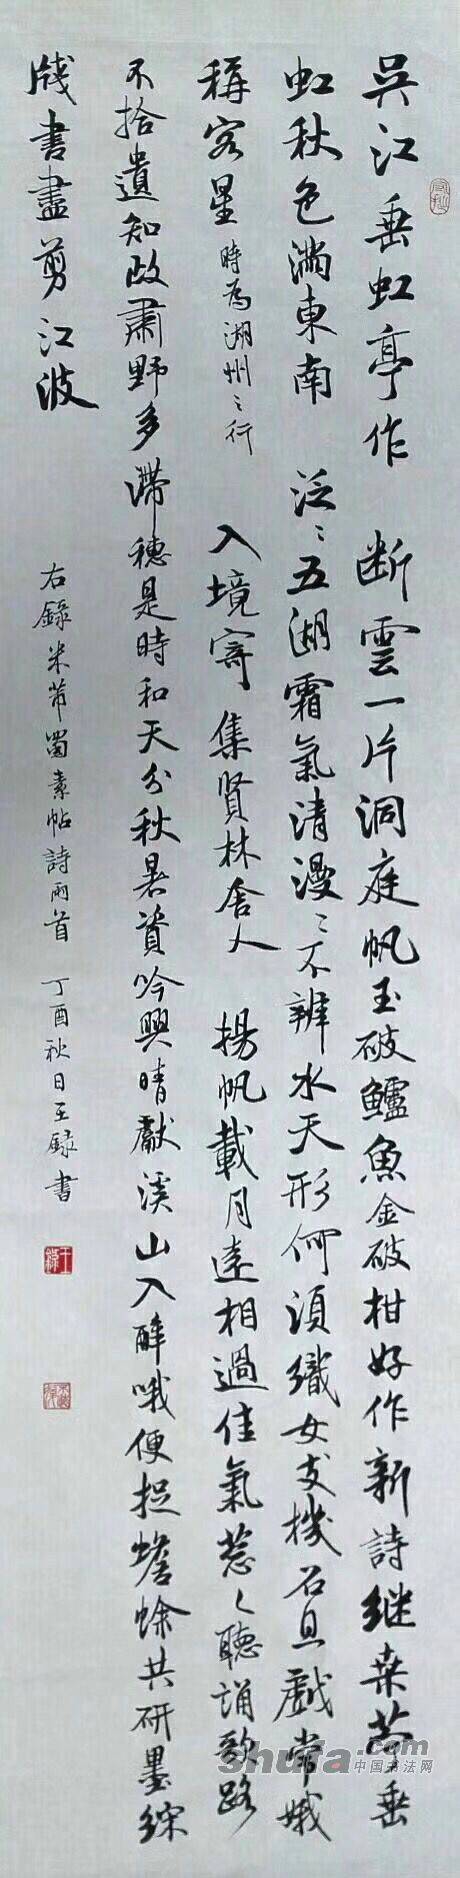 吳江垂虹亭作 断雲一片洞庭帆玉破鱸魚金破柑好作新詩継桒苧垂
虹秋色滿東南 泛〻五湖霜氣清漫〻不辨水天形何須織女支機石且戲常娥
稱客星 時為湖州〻行 入境寄集賢林舍人 揚帆載月遠相過佳氣葱〻聽誦歌路
不拾遺知政肅野多滯穗是時和天分秋暑資吟興晴獻溪山入醉哦便捉蟾蜍共研墨綵
牋書盡剪江波
右錄米芾蜀素帖詩兩首 丁酉秋日王録書
shufa.com
中国书法网